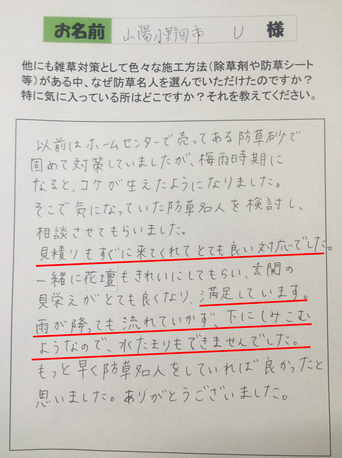 お名前 山陽小野田市 U 様
他にも雑草対策として色々な施工方法(除草剤や防草シート
等)がある中、なぜ防草名人を選んでいただけたのですか?
特に気に入っている所はどこですか?それを教えてください。
以前はホームセンターで売ってある防草砂で
固めて対策していましたが、梅雨時期に
なると、コケが生えたようになりました。
そこで気になっていた防草名人を検討し、
相談させてもらいました。
見積りもすぐに来てくれてとても良い対応でした。
一緒に花壇もきれいにしてもらい、玄関の
見栄えがとても良くなり、満足しています。
雨が降っても流れていかず、下にしみこむ
ようなので、水たまりもできませんでした。
もっと早く防草名人をしていれば良かったと
思いました。ありがとうございました。